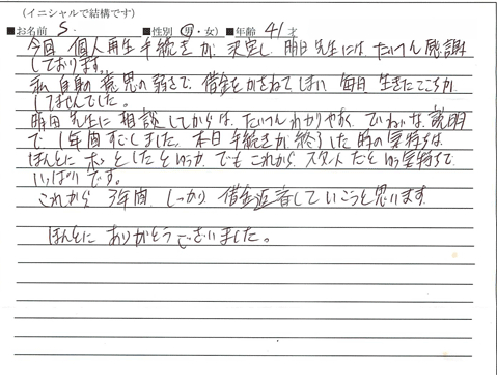 (イニシャルで結構です)
■お名前 S. ■性別 男・女) ■年齢 41才
今回 個人再生手続きが 決定し、明日先生には たいへん感謝
しております。
私自身の意思の弱さで、借金をかさねてしまい 毎日 生きたここちが
しませんでした。
明日先生に相談してからは、たいへんわかりやすく、ていねいな説明
で 1年間すごしました。本日手続きが終了した時の気持ちは、
ほんとに ホッとしたというか、でもこれから、スタートだという気持ちで
いっぱいです。
これから 3年間 しっかり 借金返済していこうと思います。
ほんとに ありがとうございました。